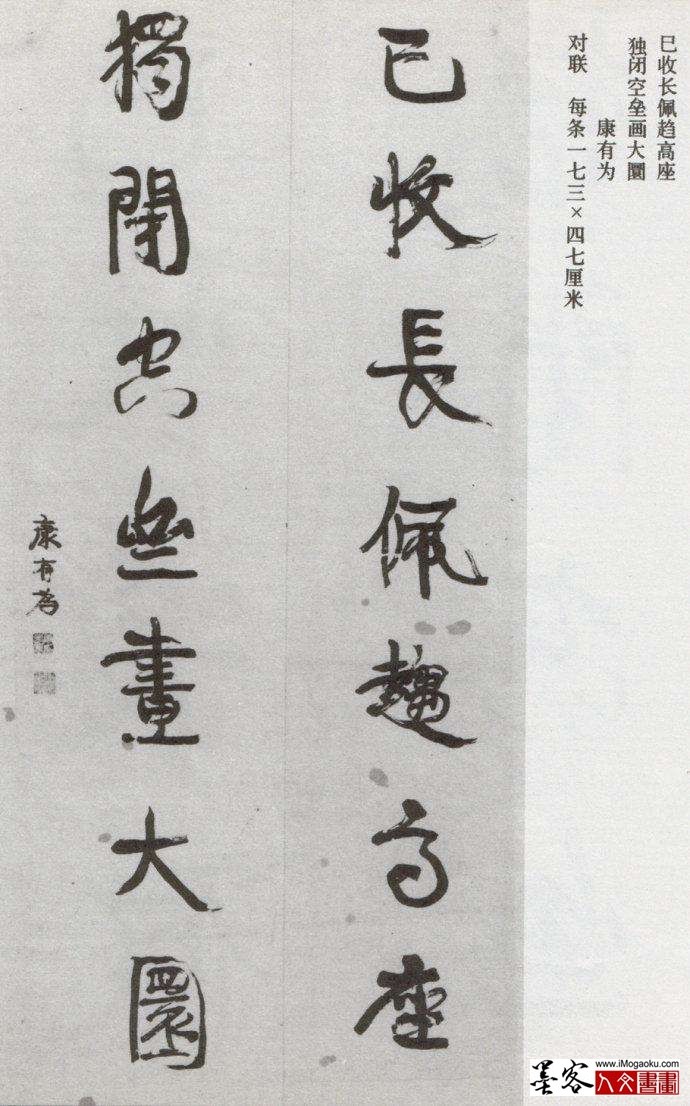 已收长佩趋高座
独闭空垒画大圜
康有为
对联 每条一七三×四七厘米
已收長佩趨高座
獨閉空壘畫大圜
康有為
www.iMogaoku.com
墨客
人文書畫